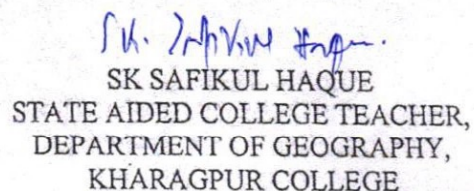 Sk. Safikul Haque.
SK SAFIKUL HAQUE
STATE AIDED COLLEGE TEACHER,
DEPARTMENT OF GEOGRAPHY,
KHARAGPUR COLLEGE